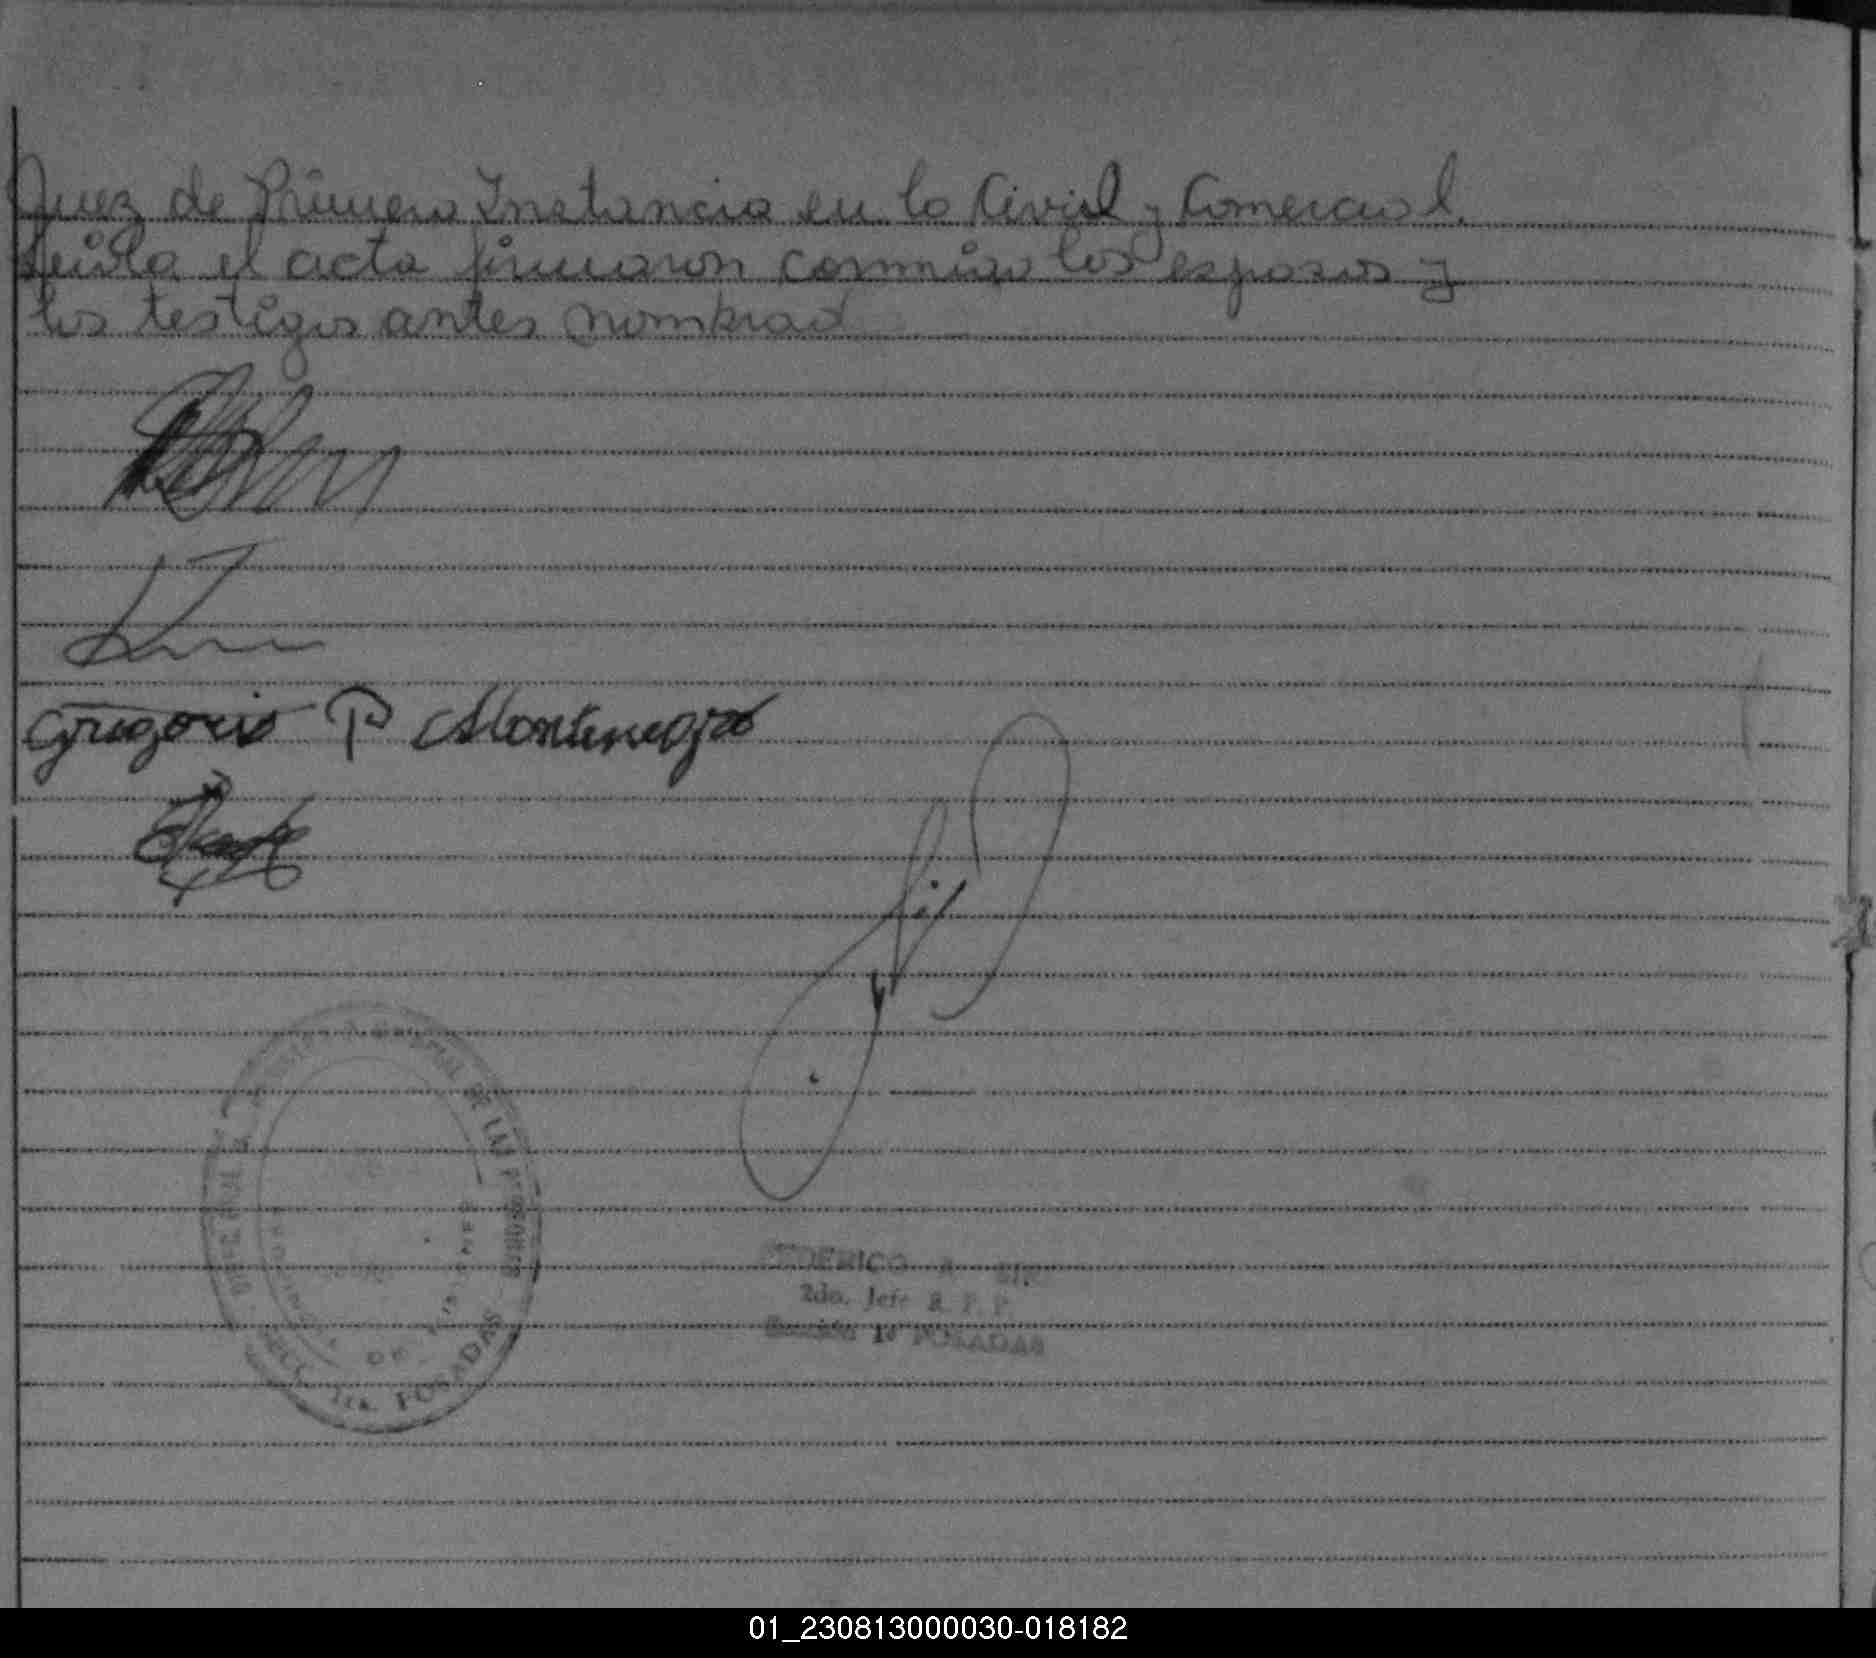 Juez de Primera Instancia en lo Civil y Comercial.
Leida el acta firmaron conmigo los esposos y
los testigos antes nombrad
Gregorio P Montenegro
DE LAS PERSONAS
PROVINCIA DE MISIONES
1ra. POSADAS
FEDERICO A.
2do. Jefe R. P. P.
Sección 1ª POSADAS
01_230813000030-018182